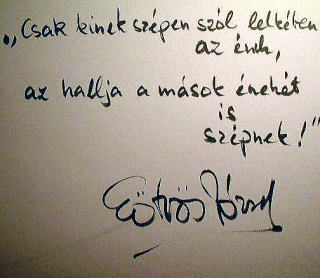 „Csak kinek szépen szól lelkében
az ének,
az hallja a mások énekét
is
szépnek!"
Eötvös József